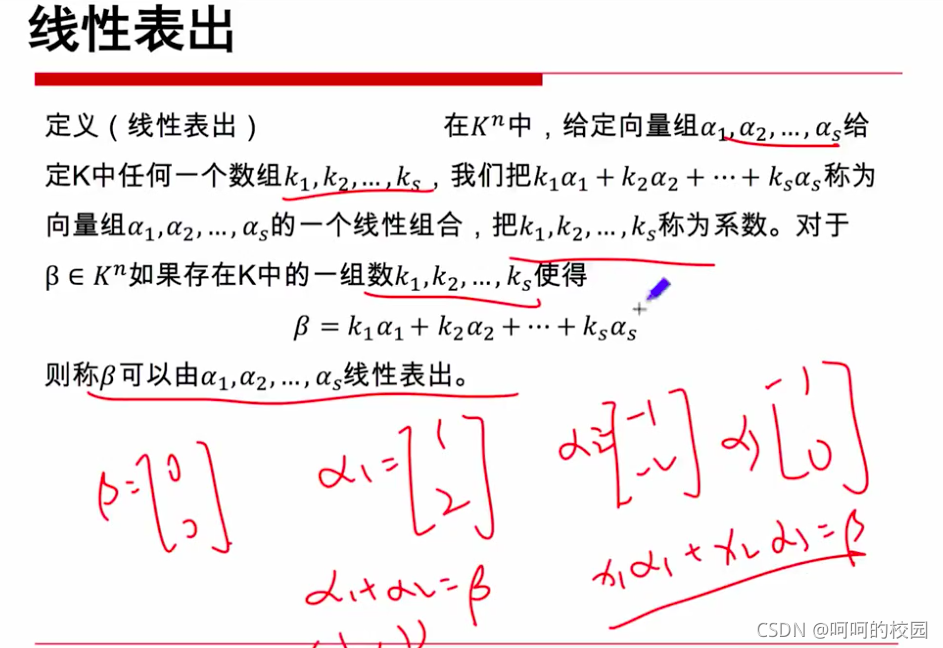 线性表出
定义（线性表出） 在Kⁿ中，给定向量组α₁,α₂,…,αₛ给
定K中任何一个数组k₁,k₂,…,kₛ，我们把k₁α₁ + k₂α₂ + ⋯ + kₛαₛ称为
向量组α₁,α₂,…,αₛ的一个线性组合，把k₁,k₂,…,kₛ称为系数。对于
β ∈ Kⁿ如果存在K中的一组数k₁,k₂,…,kₛ使得
β = k₁α₁ + k₂α₂ + ⋯ + kₛαₛ
则称β可以由α₁,α₂,…,αₛ线性表出。
β=[0 0] α₁=[1 2] α₂=[-1 -2] α₃[-1 0]
α₁+α₂=β x₁α₁+x₂α₃=β
CSDN @呵呵的校园